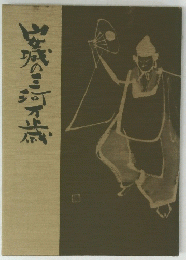 安城の三河万歳